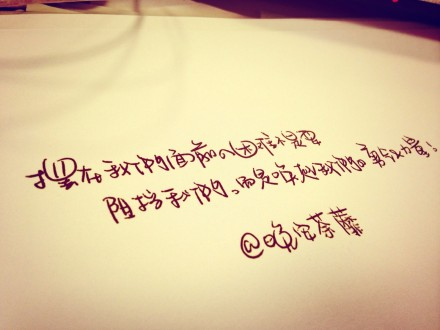 摆在我们面前的困难不是要
阻挡我们，而是唤起我们的勇气与力量；
@晚安荼蘼